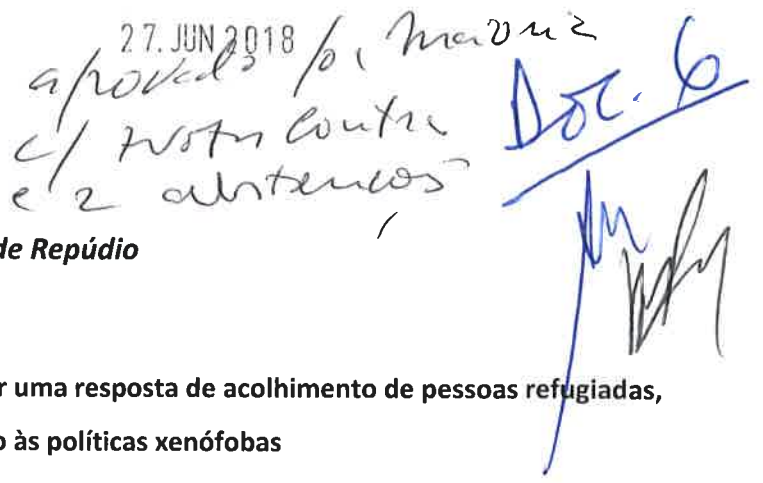 27. JUN 2018
aprovado por maioria
c/ votos contra
e 2 abstenções
Doc. 6
de Repúdio
r uma resposta de acolhimento de pessoas refugiadas,
o às políticas xenófobas